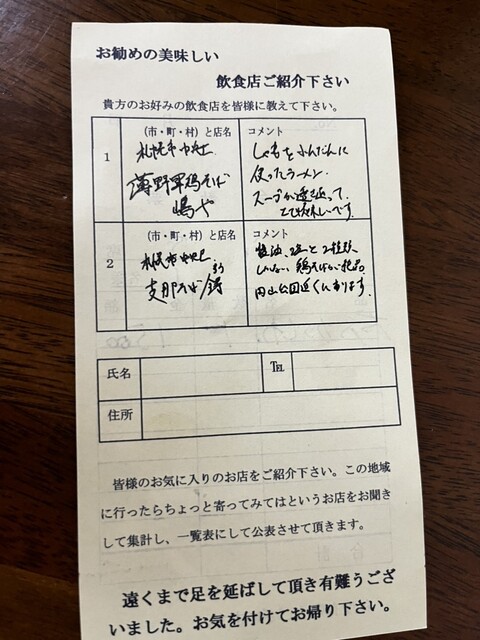 お勧めの美味しい
飲食店ご紹介下さい
貴方のお好みの飲食店を皆様に教えて下さい。
1
(市・町・村)と店名
札幌市中央区
薄野軍鶏そば
嶋や
コメント
しゃもをふんだんに
使ったラーメン
スープが透き通って
とても美味しいです。
2
(市・町・村)と店名
札幌市中央区
支那そば
コメント
醤油、塩と2種類
しかない、鶏そばも絶品
円山公園近くにあります。
氏名
TEL
住所
皆様のお気に入りのお店をご紹介下さい。この地域
に行ったらちょっと寄ってみてはというお店をお聞き
して集計し、一覧表にして公表させて頂きます。
遠くまで足を延ばして頂き有難うござ
いました。お気を付けてお帰り下さい。